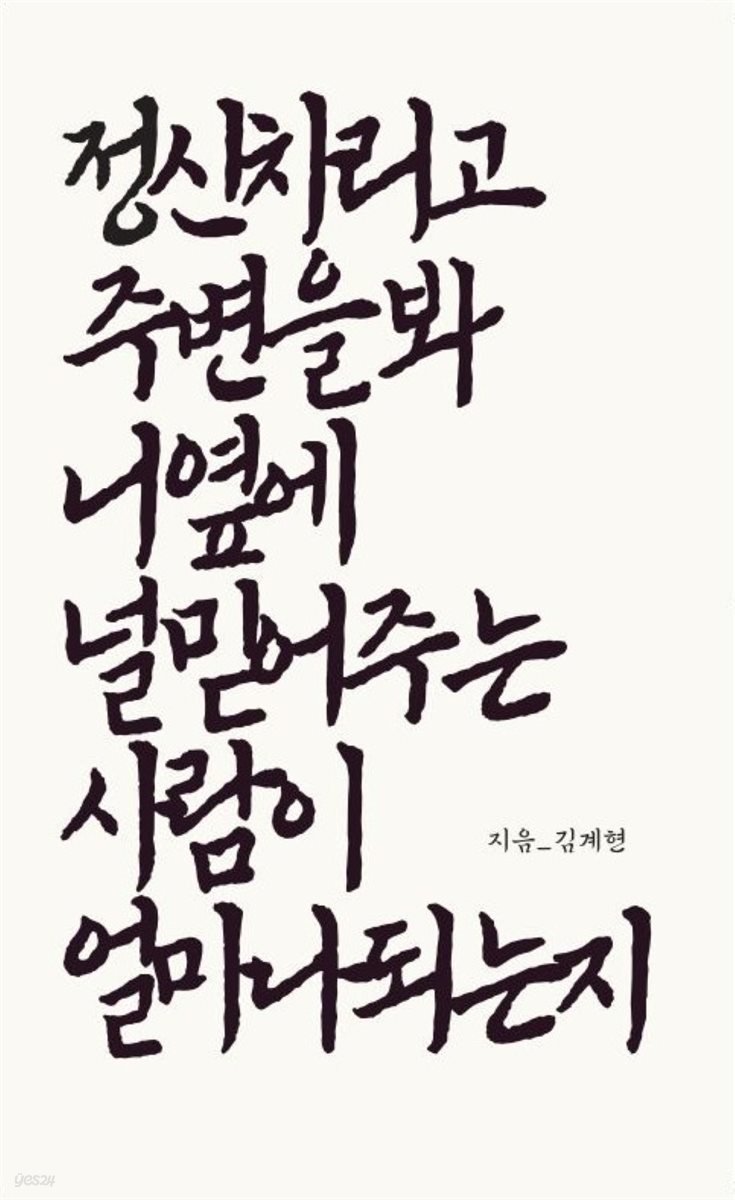 정신차리고
주변을봐
니옆에
널믿어주는
사람이
지음_김계현
얼마나되는지
yes24